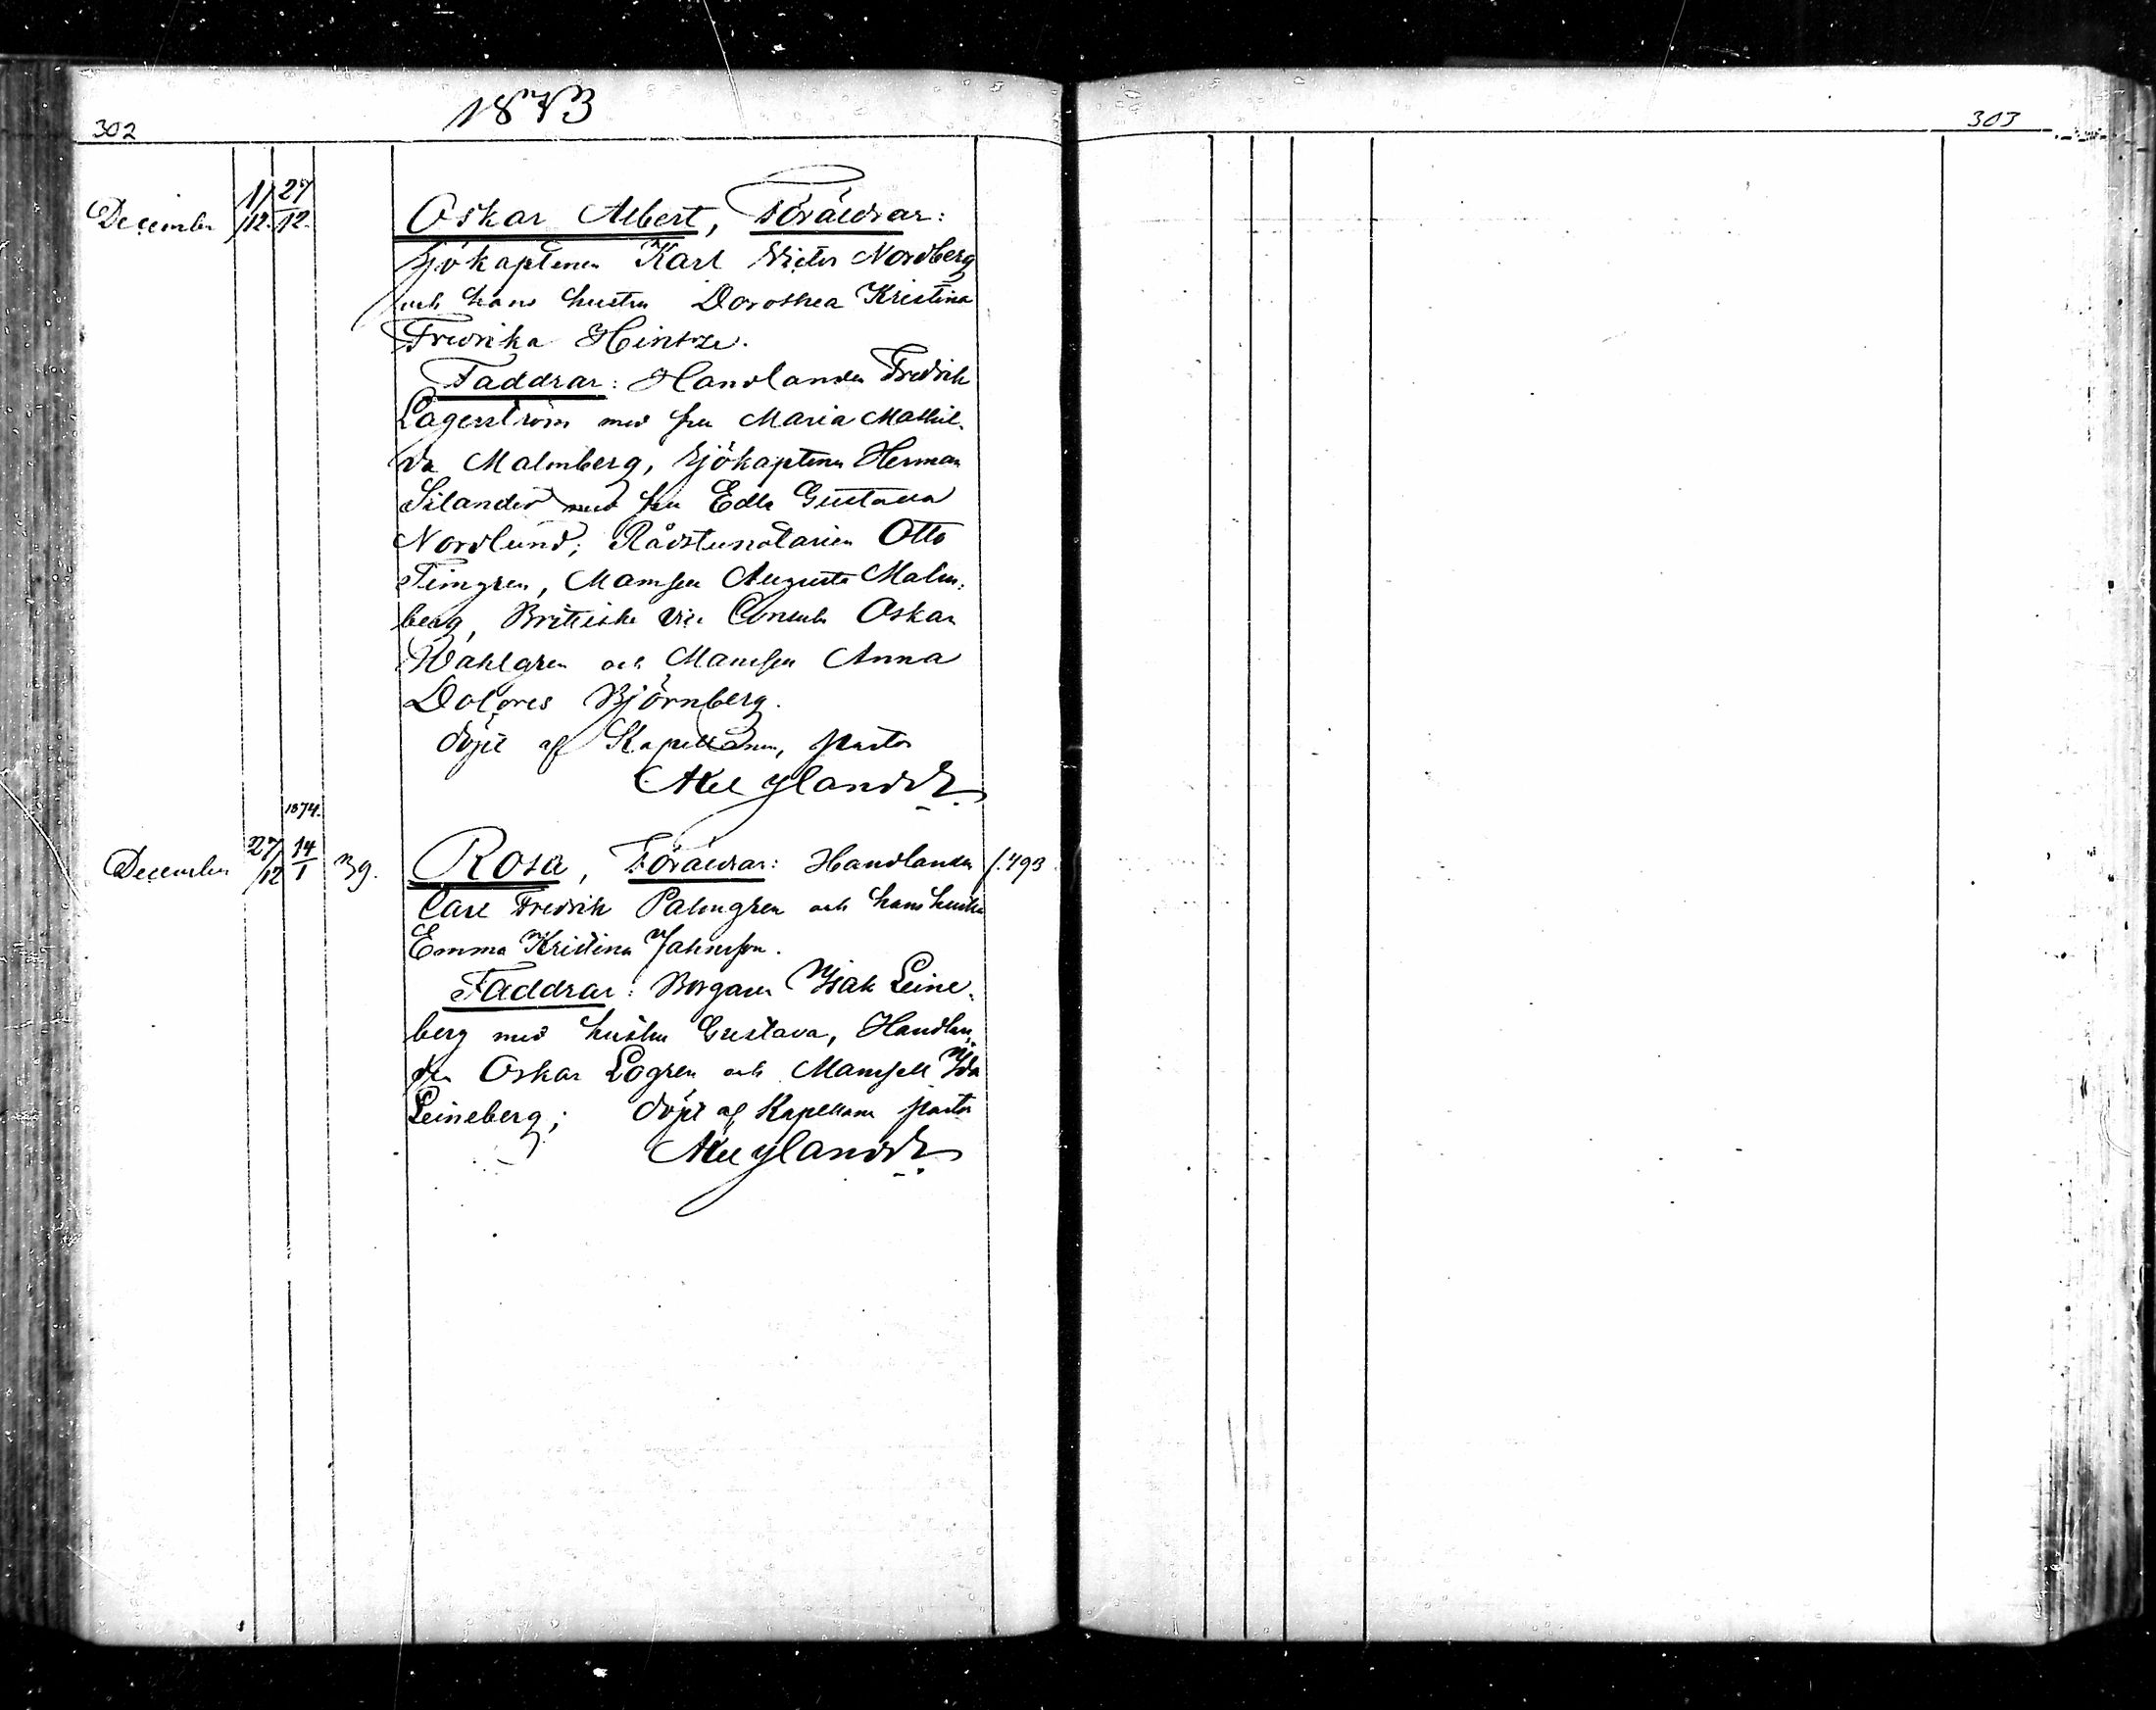 302
1873
303
December 1/12. 27/12. Oskar Albert, Föräldrar:
Sjökaptenen Karl Victor Nordberg
och hans hustru Dorothea Kristina
Fredrika Hintze.
Faddrar: Handlanden Fredrik
Lagerström med fru Maria Mathil-
da Malmberg, Sjökaptenen Herman
Silander med fru Edla Gustava
Nordlund; Rådstunotarien Otto
Timgren, Mamsell Augusta Malm-
berg, Brittiske Vice Consuln Oskar
Wahlgren och Mamsell Anna
Dolores Björnberg.
döpt af Kapellanen, pastor
Axel Ylander.
1874.
December 27/12 14/1 39. Rosa, Föräldrar: Handlanden f. 493.
Carl Fredrik Palmgren och hans hustru
Emma Kristina Johnsson.
Faddrar: Borgaren Isak Leine-
berg med hustru Gustava, Handlan-
den Oskar Logren och Mamsell Ida
Leineberg; döpt af Kapellanen pastor
Axel Ylander.